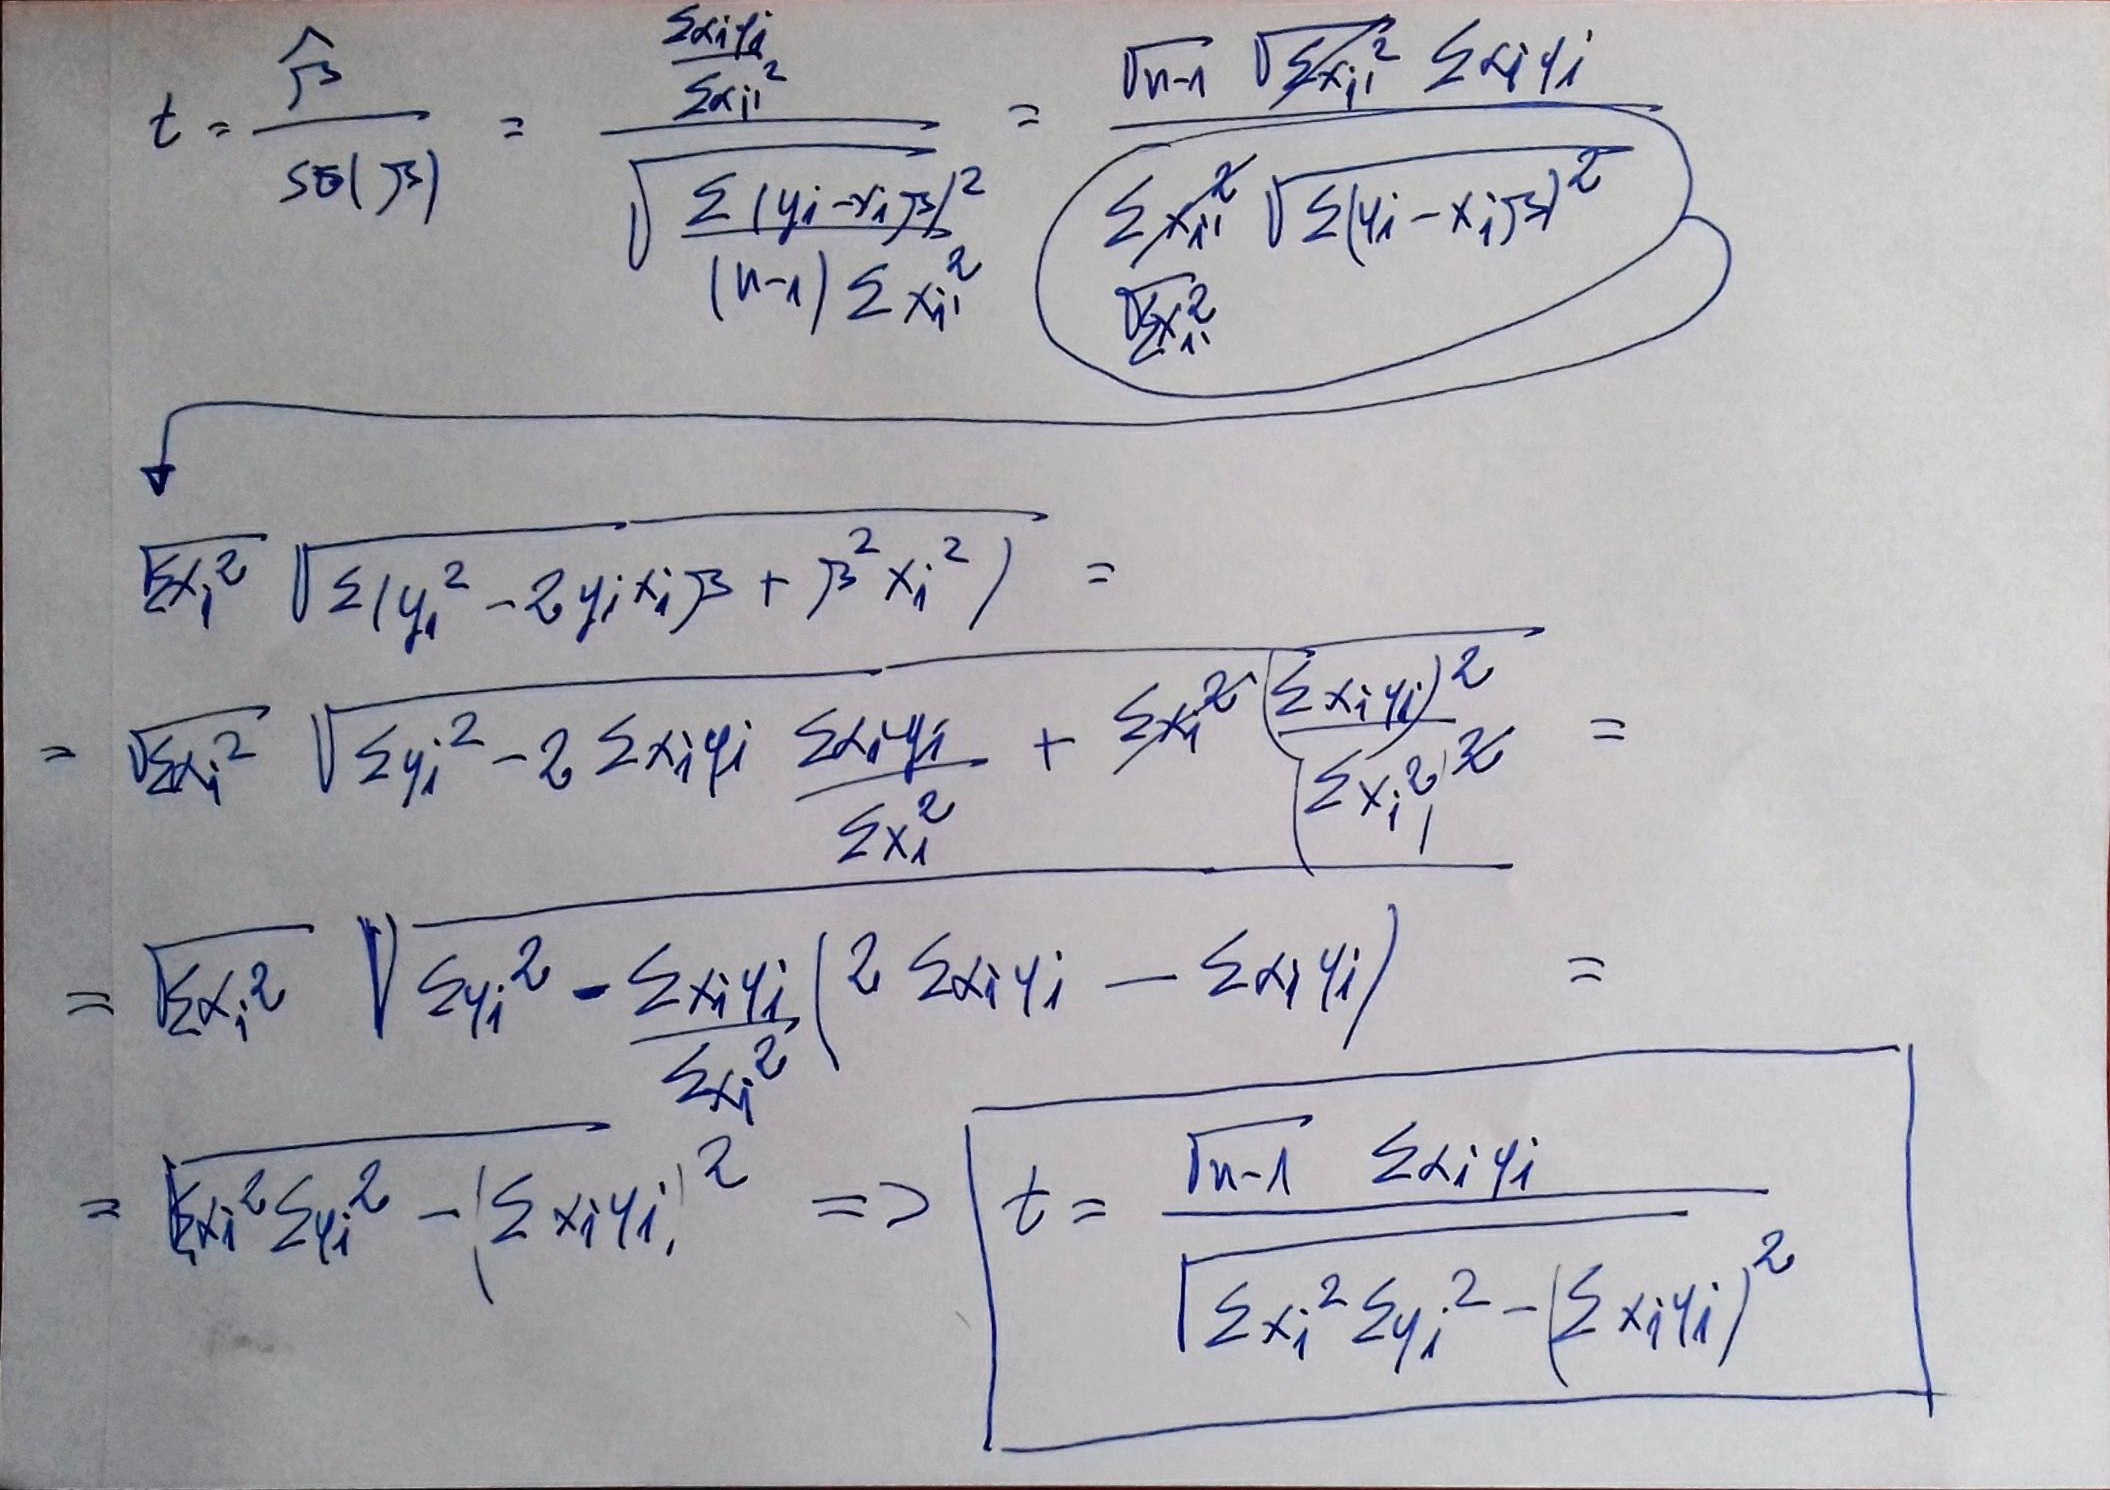 t = β̂ / SE(β) = (Σxiyi / Σxi²) / √(Σ(yi-xiβ)² / (n-1)Σxi²) = √n-1 √Σxi² Σxiyi / Σxi² √Σ(yi-xiβ)²
√Σxi²
√Σxi² √Σ(yi² - 2yixiβ + β²xi²) =
= √Σxi² √Σyi² - 2 Σxiyi Σxiyi / Σxi² + Σxi² (Σxiyi)² / (Σxi²)² =
= √Σxi² √Σyi² - Σxiyi / Σxi² (2 Σxiyi - Σxiyi) =
= √Σxi²Σyi² - (Σxiyi)² => t = √n-1 Σxiyi / √Σxi²Σyi² - (Σxiyi)²